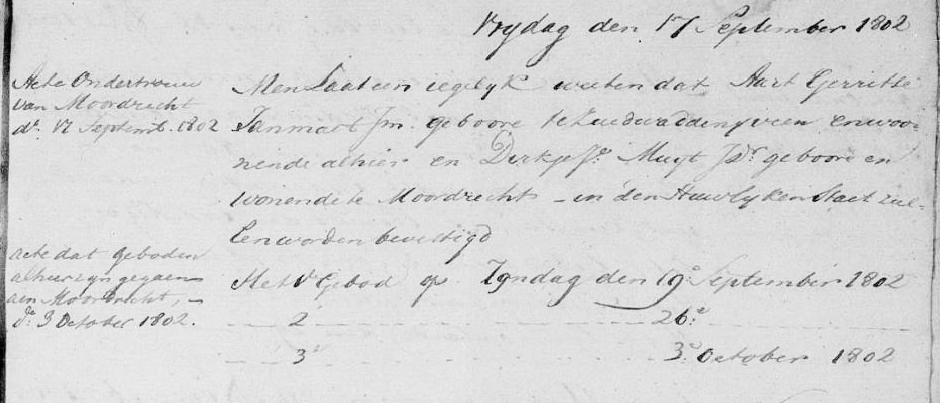 Vrydag den 17 September 1802
Acte Ondertrouw
van Moordrecht
dn. 17 Septemb. 1802
Men Laat een iegelyk weeten dat Aart Gerritse
Janmaat Jm. geboore te Zuidwaddingveen en woo-
nende alhier en Dirkje Muyt Jdr. geboore en
wonende te Moordrecht - in den Huwlyken Staet zul-
len worden bevestigd
acte dat geboden
alhier zyn gegaen
aen Moordrecht, -
dn. 3 October 1802.
Het 1e Gebod op Zondag den 19e September 1802
2e 26e
3e 3e October 1802